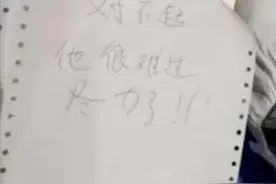 对不起
他很难过
尽力了!!!